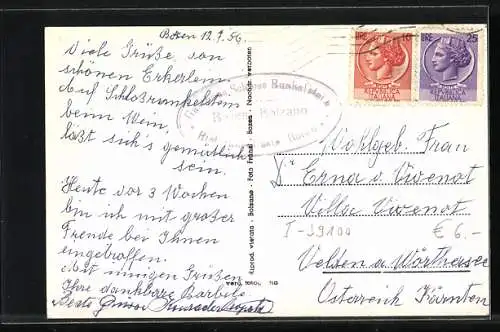 Bozen 12.9.56
Viele Grüße, von
schönen Erkerlem
auf Schloßrunkelstein
beim Wein,
läßt sich's gemütlich
sein.
Heute vor 3 Wochen
bin ich mit großer
Freude bei Ihnen
eingetroffen.
Mit innigen Grüßen
Ihre dankbare
Schloss Runkelstein
Bozen Bolzano
Riproduz. vietata - Bolzano - Foto Fränzl - Bozen - Nachdr. verboten
LIRE 10
REPUBBLICA
ITALIANA
LIRE 25
REPUBBLICA
ITALIANA
Wohlgeb. Frau
Dr Erna v. Vivenot
Villa Vivenot
I-39100
€ 6.-
Velden a/Wörthersee
Österreich Kärnten